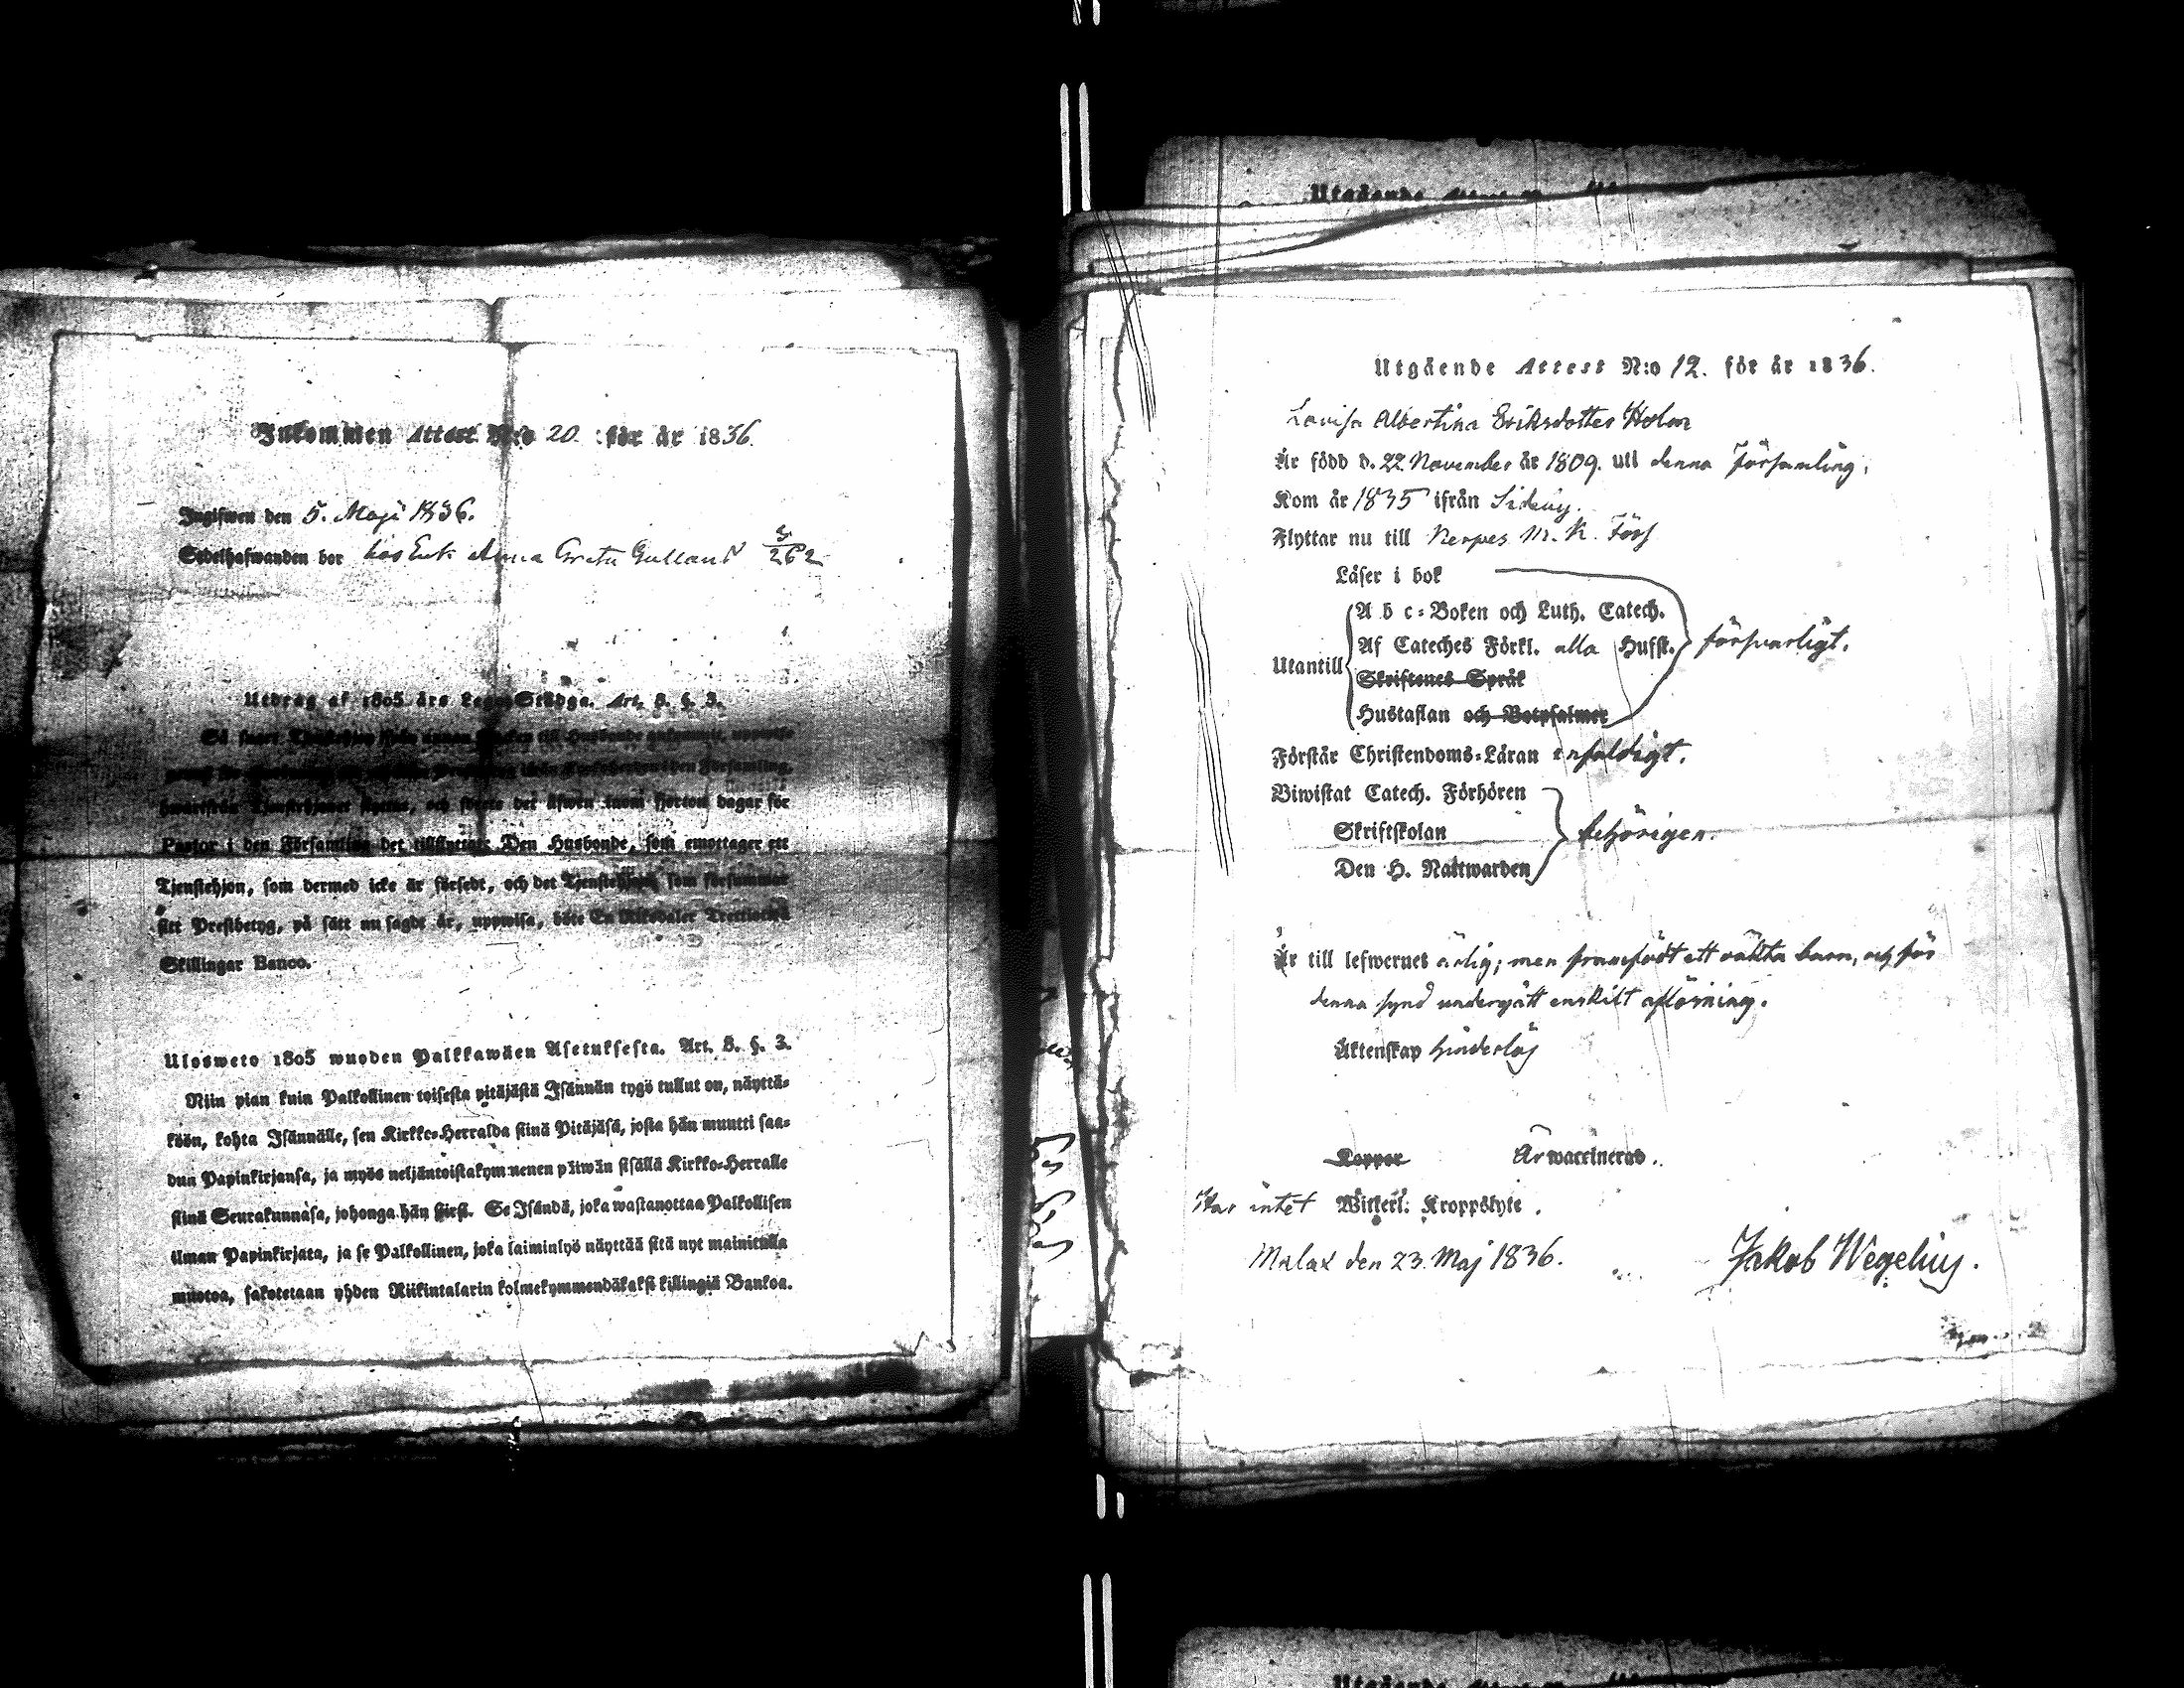 Inkommen Attest N:o 20. för år 1836.
Ingifwen den 5. Maji 1836.
Sedelhafwanden bor hos Enk. Anna Greta Gullans 262
Utdrag af 1805 års Lego-Stadga. Art. 8. §. 3.
Så snart Tjenstehjon ifrån annan till Husbonde ankommit, uppwise
Församling,
hwarifrån Tjenstehjonet flyttat, och förete det äfwen inom fjorton dagar för
Pastor i den Församling det tillflyttat. Den Husbonde, som emottager ett
Tjenstehjon, som dermed icke är försedt, och det Tjenstehjon, som försummar
sitt Prestbetyg, på sätt nu sagdt är, uppwisa, böte En Riksdaler Trettiotwå
Skillingar Banco.
Ulosweto 1805 wuoden Palkkawäen Asetuksesta. Art. 8. §. 3.
Niin pian kuin Palkollinen toisesta pitäjästä Isännän tygö tullut on, näyttä-
köön, kohta Isännälle, sen Kirkko-Herralda siinä Pitäjäsä, josta hän muutti saa-
dun Papinkirjansa, ja myös neljäntoistakymmenen päiwän sisällä Kirkko-Herralle
siinä Seurakunnasa, johonga hän siirsi. Se Isändä, joka wastanottaa Palkollisen
ilman Papinkirjata, ja se Palkollinen, joka laiminlyö näyttää sitä nyt mainitulla
muotoa, sakotetaan yhden Riikintalarin kolmekymmendäkaksi killingiä Bankoa.
Utgående Attest N:o 12. för år 1836.
Lovisa Albertina Eriksdotter Holm
Är född d. 22 November år 1809. uti denna Församling,
Kom år 1835 ifrån Sideby.
Flyttar nu till Nerpes M. K. Förs
Läser i bok
A b c-Boken och Luth. Catech.
Af Cateches Förkl. alla Hufst. försvarligt.
Utantill
Skriftenes Språk
Hustaflan och Botpsalmer
Förstår Christendoms-Läran enfaldigt.
Biwistat Catech. Förhören
Skriftskolan behörigen.
Den H. Nattwarden
Är till lefwernet ärlig; men framfödt ett oäkta barn, och för
denna synd undergått enskilt aflösning.
Äktenskap hinderlös
Koppor Är waccinerad.
Har intet Witterl: Kroppslyte.
Malax den 23. Maj 1836. Jakob Wegelius.
Utgående